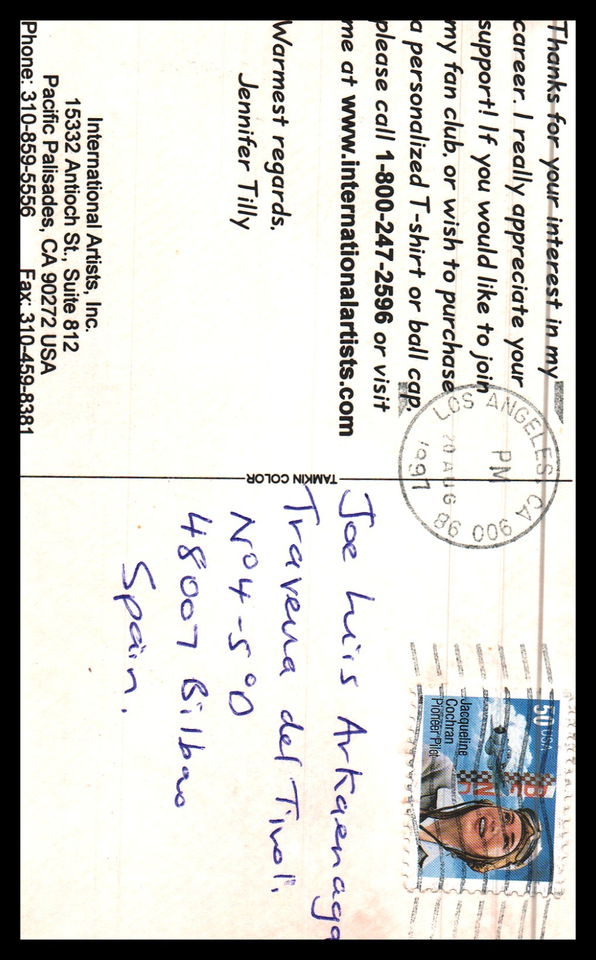 Thanks for your interest in my
career. I really appreciate your
support! If you would like to join
my fan club, or wish to purchase
a personalized T-shirt or ball cap,
please call 1-800-247-2596 or visit
me at www.internationalartists.com
Warmest regards,
Jennifer Tilly
International Artists, Inc.
15332 Antioch St., Suite 812
Pacific Palisades, CA 90272 USA
Phone: 310-859-5556 Fax: 310-459-8381
TAMKIN COLOR
LOS ANGELES CA 900 98
PM
20 AUG
1997
50 USA
Jacqueline
Cochran
Pioneer Pilot
Joe Luis Arkaenaga
del Tivoli
Nº 4-5ºD
48007 Bilbao
Spain.